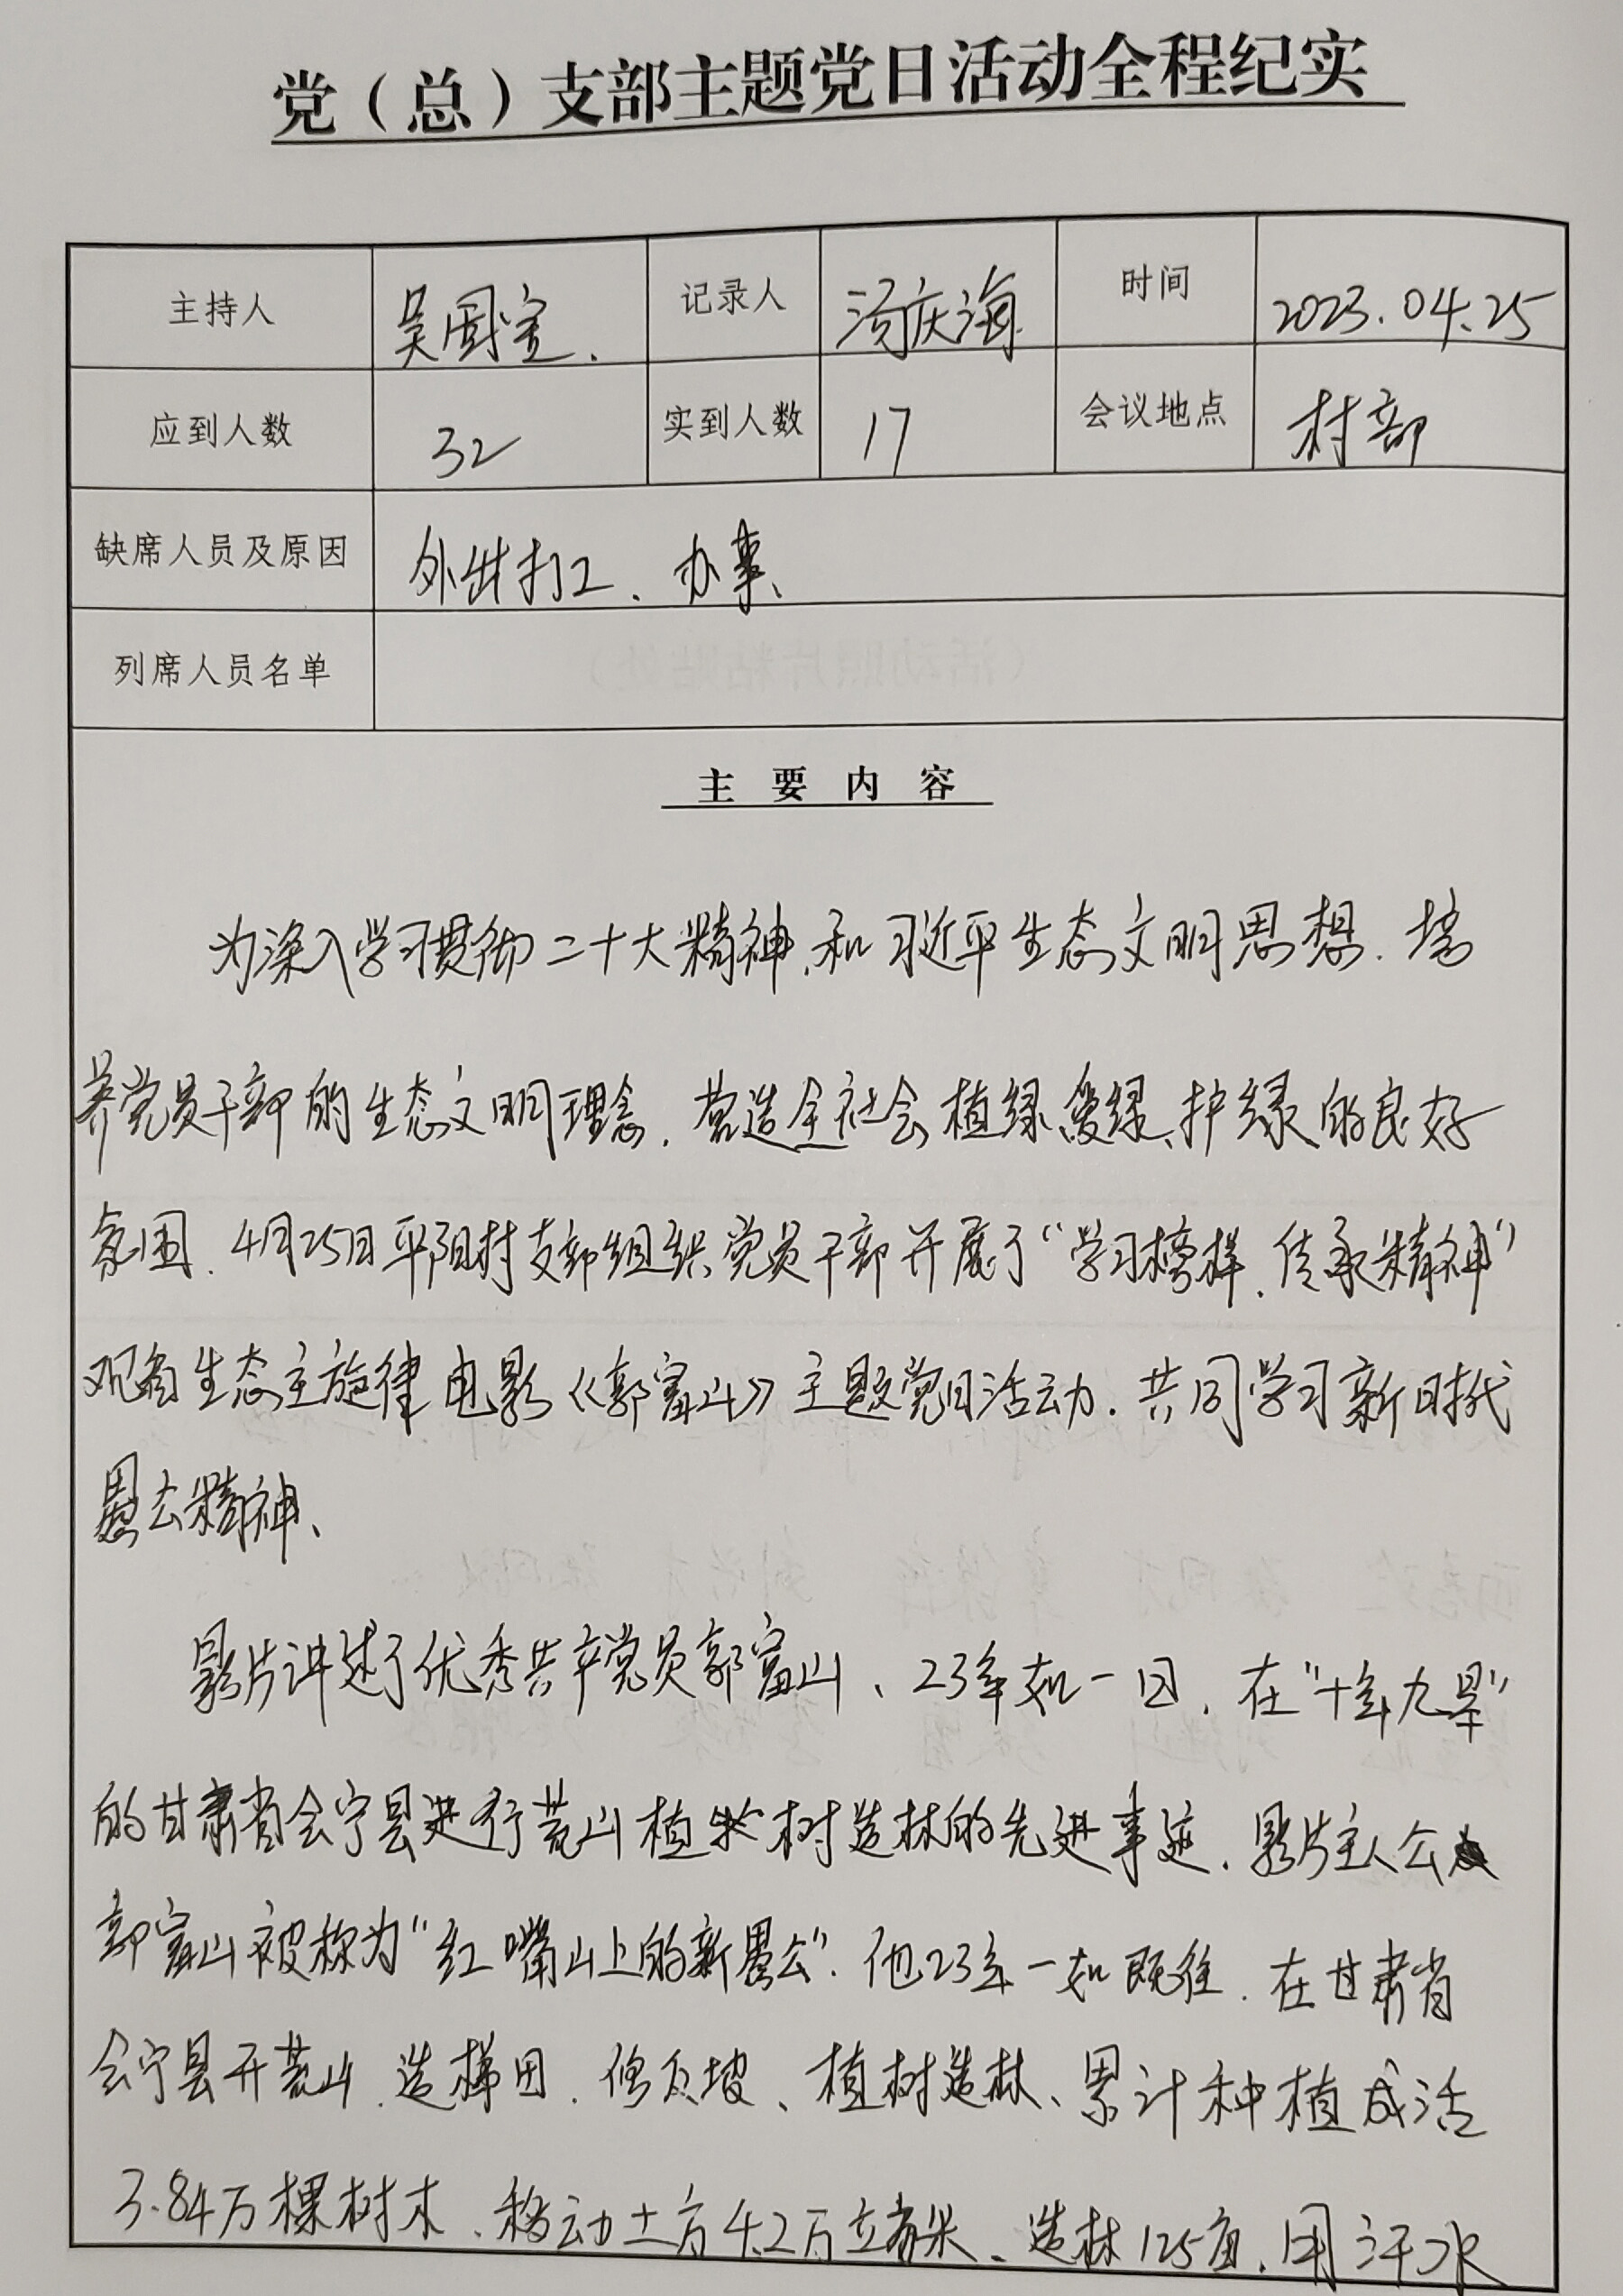 党（总）支部主题党日活动全程纪实
主持人 吴国宝. 记录人 汤庆海 时间 2023.04.25
应到人数 32 实到人数 17 会议地点 村部
缺席人员及原因 外出打工、办事、
列席人员名单
主要内容
为深入学习贯彻二十大精神、和习近平生态文明思想、培
养党员干部的生态文明理念、营造全社会植绿、爱绿、护绿的良好
氛围、4月25日平阳村支部组织党员干部开展了“学习榜样、传承精神”
观看生态主旋律电影《郭富山》主题党日活动、共同学习新时代
愚公精神、
影片讲述了优秀共产党员郭富山、23年如一日、在“十年九旱”
的甘肃省会宁县进行荒山植树造林的先进事迹、影片主人公
郭富山被称为“红嘴山上的新愚公”、他23年一如既往、在甘肃省
会宁县开荒山、造梯田、修反坡、植树造林、累计种植成活
3.84万棵树木、移动土方4.2万立方米、造林125亩、用汗水